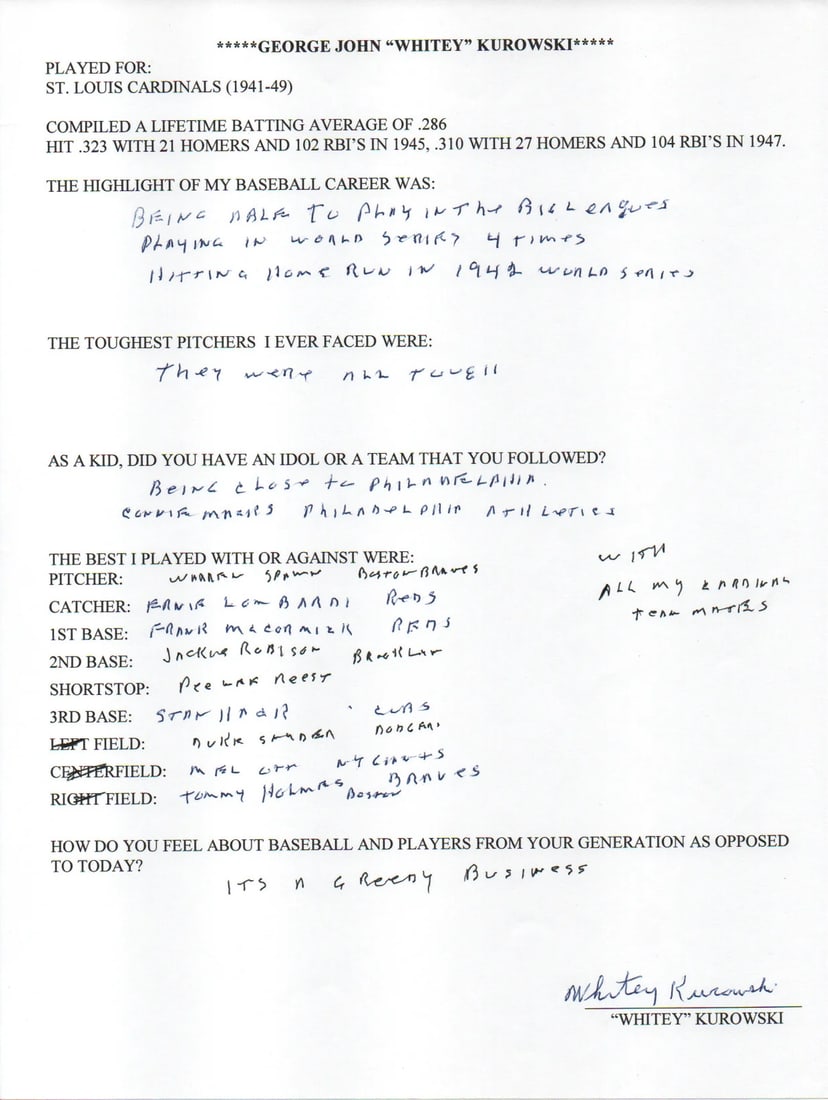 *****GEORGE JOHN “WHITEY” KUROWSKI*****
PLAYED FOR:
ST. LOUIS CARDINALS (1941-49)
COMPILED A LIFETIME BATTING AVERAGE OF .286
HIT .323 WITH 21 HOMERS AND 102 RBI'S IN 1945, .310 WITH 27 HOMERS AND 104 RBI'S IN 1947.
THE HIGHLIGHT OF MY BASEBALL CAREER WAS:
BEING ABLE TO PLAY IN THE BIG LEAGUES
PLAYING IN WORLD SERIES 4 TIMES
HITTING HOME RUN IN 1942 WORLD SERIES
THE TOUGHEST PITCHERS I EVER FACED WERE:
THEY WERE ALL TOUGH
AS A KID, DID YOU HAVE AN IDOL OR A TEAM THAT YOU FOLLOWED?
BEING CLOSE TO PHILADELPHIA.
CONNIE MACKS PHILADELPHIA ATHLETICS
THE BEST I PLAYED WITH OR AGAINST WERE:
PITCHER: WARREN SPAWN BOSTON BRAVES
CATCHER: ERNIE LOMBARDI REDS
1ST BASE: FRANK MCCORMICK REDS
2ND BASE: JACKIE ROBISON BROOKLYN
SHORTSTOP: PEE WEE REESE
3RD BASE: STAN HACK CUBS
LEFT FIELD: DUKE SNYDER DODGERS
CENTERFIELD: MEL OTT NY GIANTS
RIGHT FIELD: TOMMY HOLMES BOSTON BRAVES
WITH
ALL MY CARDINAL
TEAM MATES
HOW DO YOU FEEL ABOUT BASEBALL AND PLAYERS FROM YOUR GENERATION AS OPPOSED
TO TODAY?
ITS A GREEDY BUSINESS
Whitey Kurowski
“WHITEY” KUROWSKI